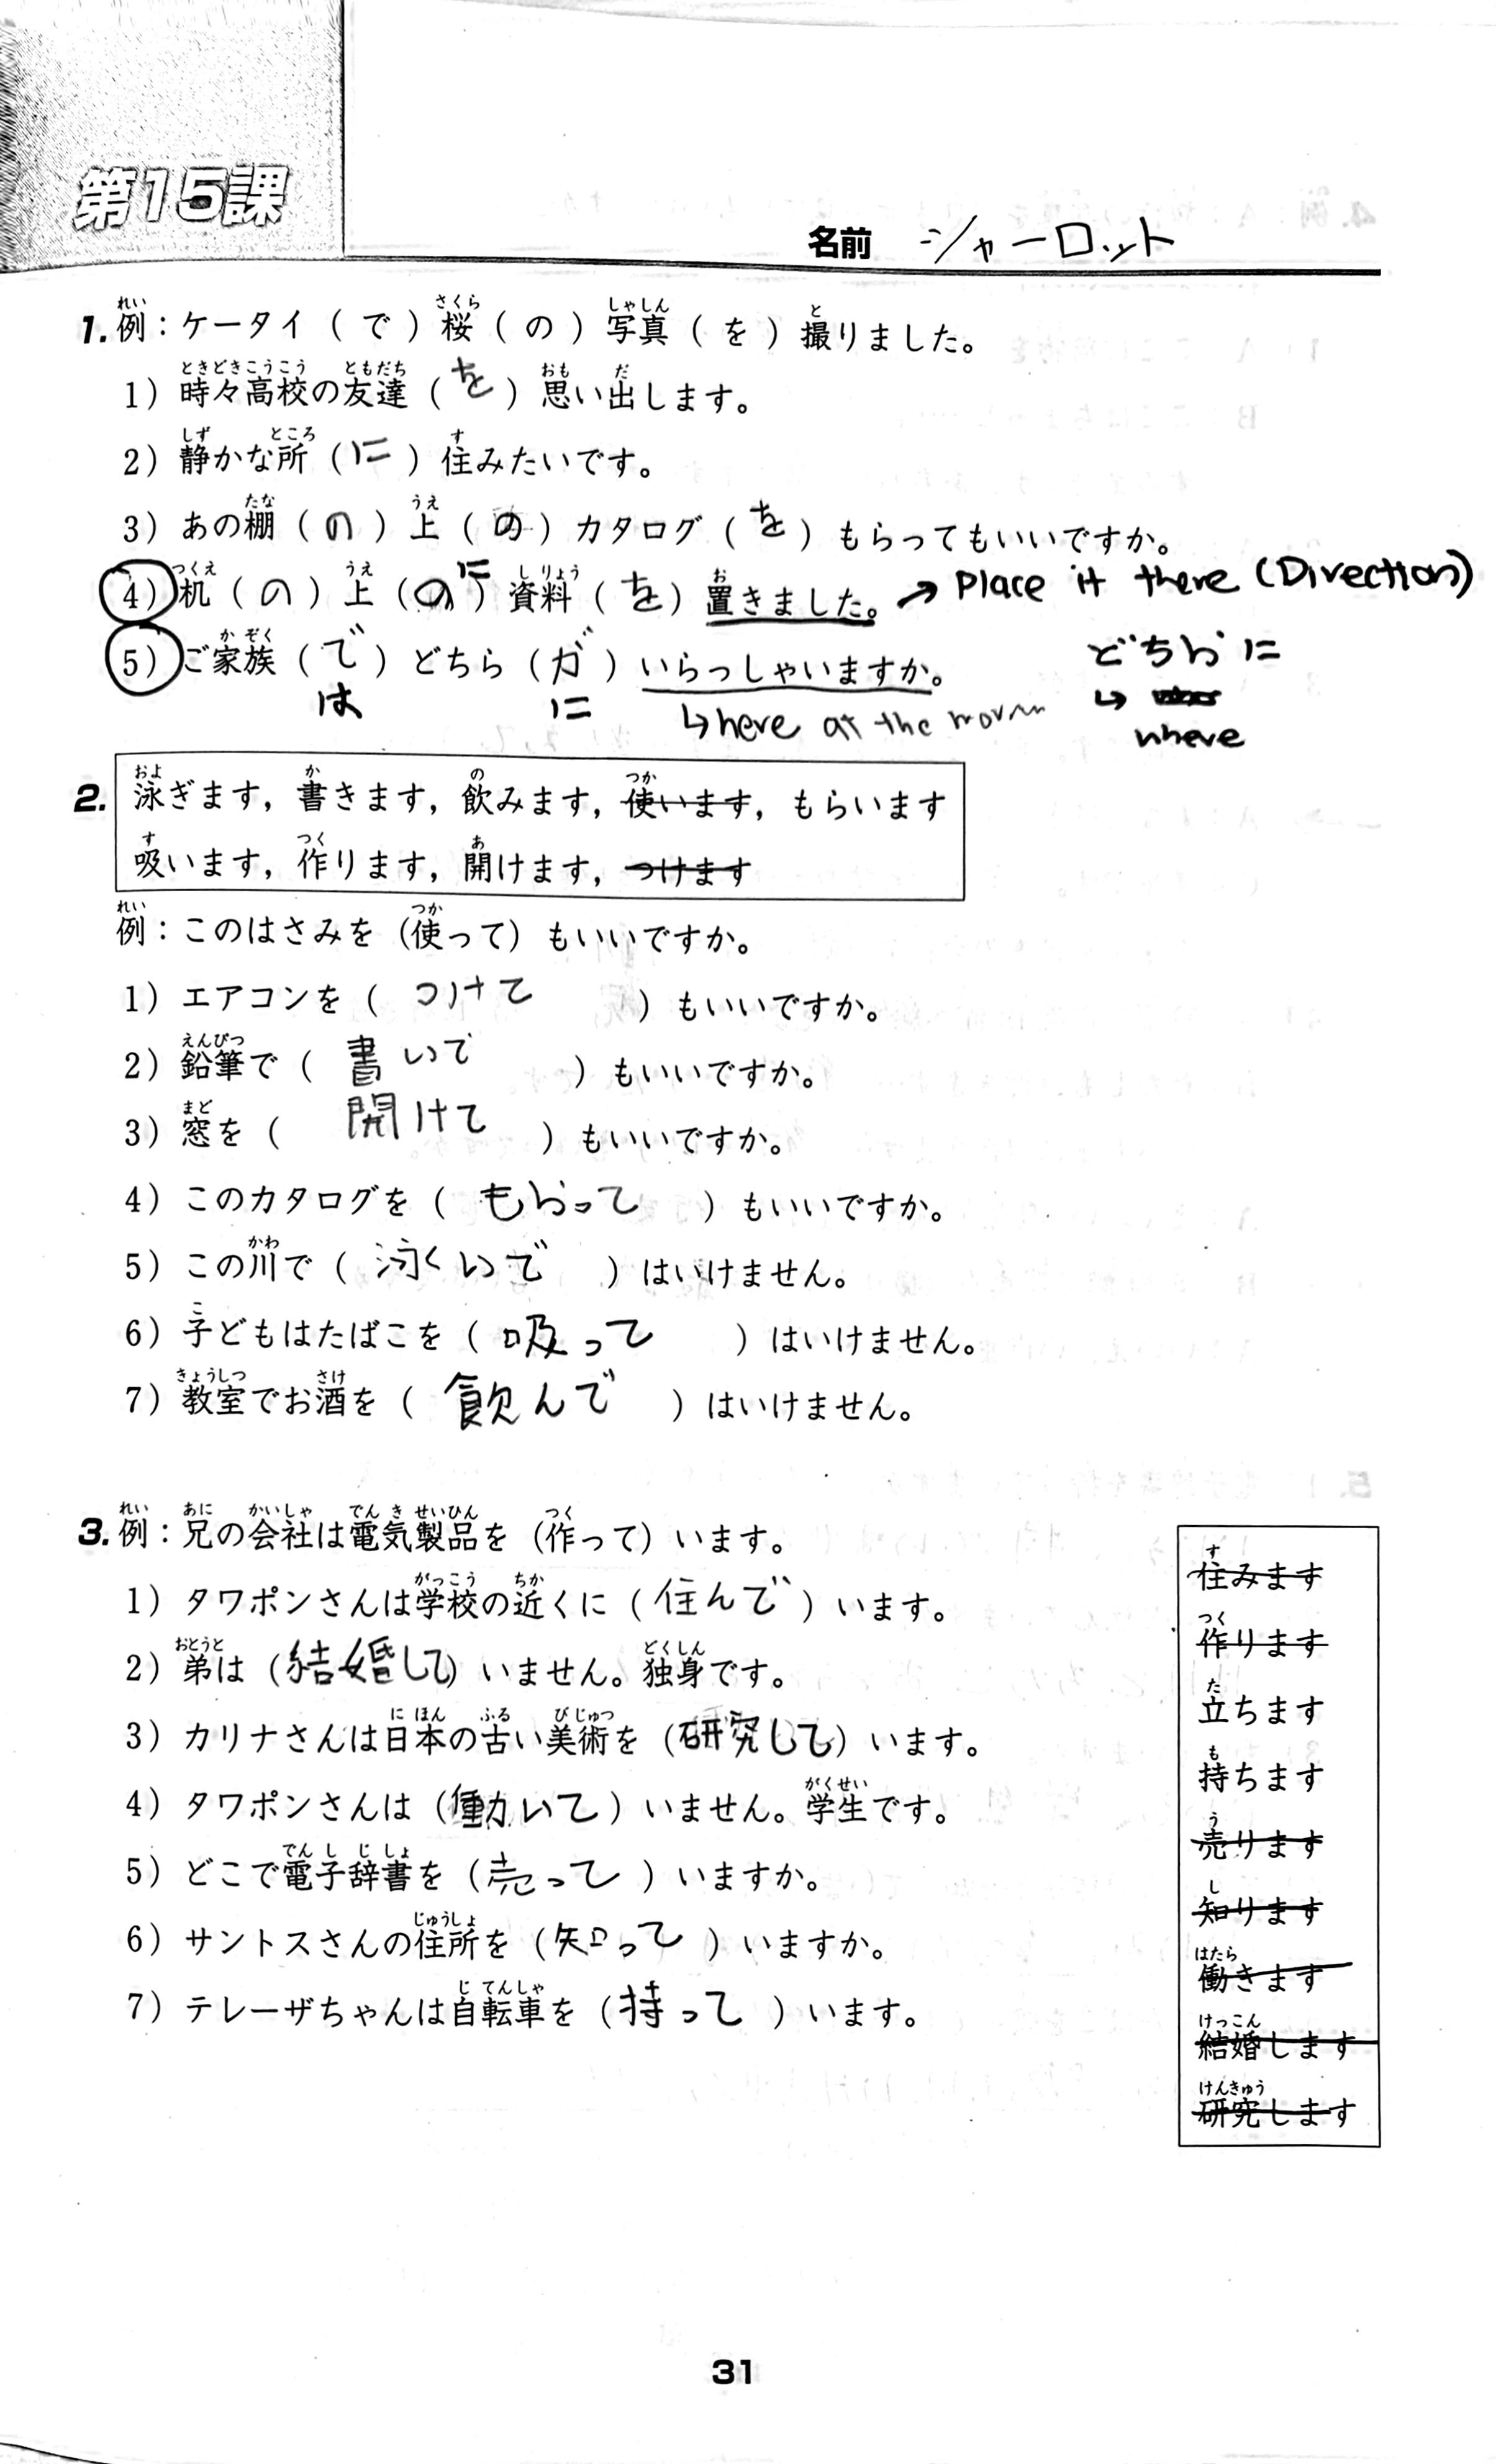 第15課
名前 シャーロット
1. 例：ケータイ（で）桜（の）写真（を）撮りました。
1）時々高校の友達（を）思い出します。
2）静かな所（に）住みたいです。
3）あの棚（の）上（の）カタログ（を）もらってもいいですか。
4）机（の）上（のに）資料（を）置きました。→ Place it there (Direction)
5）ご家族（で）どちら（が）いらっしゃいますか。 どちらに
は に ↳ here at the ↳ where
2. 泳ぎます，書きます，飲みます，使います，もらいます
吸います，作ります，開けます，つけます
例：このはさみを（使って）もいいですか。
1）エアコンを（つけて）もいいですか。
2）鉛筆で（書いて）もいいですか。
3）窓を（開けて）もいいですか。
4）このカタログを（もらって）もいいですか。
5）この川で（泳くいで）はいけません。
6）子どもはたばこを（吸って）はいけません。
7）教室でお酒を（飲んで）はいけません。
3. 例：兄の会社は電気製品を（作って）います。
1）タワポンさんは学校の近くに（住んで）います。
2）弟は（結婚して）いません。独身です。
3）カリナさんは日本の古い美術を（研究して）います。
4）タワポンさんは（働いて）いません。学生です。
5）どこで電子辞書を（売って）いますか。
6）サントスさんの住所を（知って）いますか。
7）テレーザちゃんは自転車を（持って）います。
住みます
作ります
立ちます
持ちます
売ります
知ります
働きます
結婚します
研究します
31